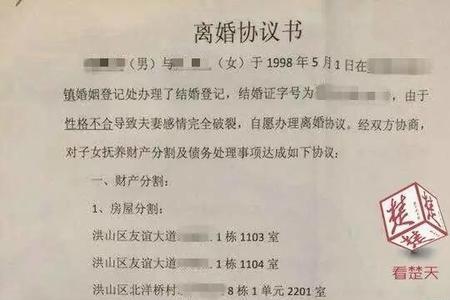 离婚协议书
（男）与（女）于1998年5月1日在
镇婚姻登记处办理了结婚登记，结婚证字号为，由于
性格不合导致夫妻感情完全破裂，自愿办理离婚协议。经双方协商，
对子女抚养财产分割及债务处理事项达成如下协议：
一、财产分割：
1、房屋分割：
洪山区友谊大道1栋1103室
洪山区友谊大道1栋1104室
洪山区北洋桥村8栋1单元2201室
楚
看楚天